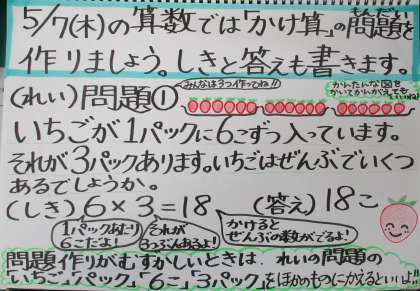 5/7(木)の算数では「かけ算」の問題を
作りましょう。しきと答えも書きます。
(れい)問題①
みんなは3つ作ってね!!
かんたんな図を
かいてかんがえても
いいね!
いちごが1パックに6こずつ入っています。
それが3パックあります。いちごはぜんぶでいくつ
あるでしょうか。
(しき)6×3=18 (答え)18こ
1パックあたり
6こだよ!
それが
3つぶんあるよ!
かけると
ぜんぶの数がでるよ!
問題作りがむずかしいときは、れいの問題の
「いちご」「パック」「6こ」「3パック」をほかのものにかえるといいよ!!